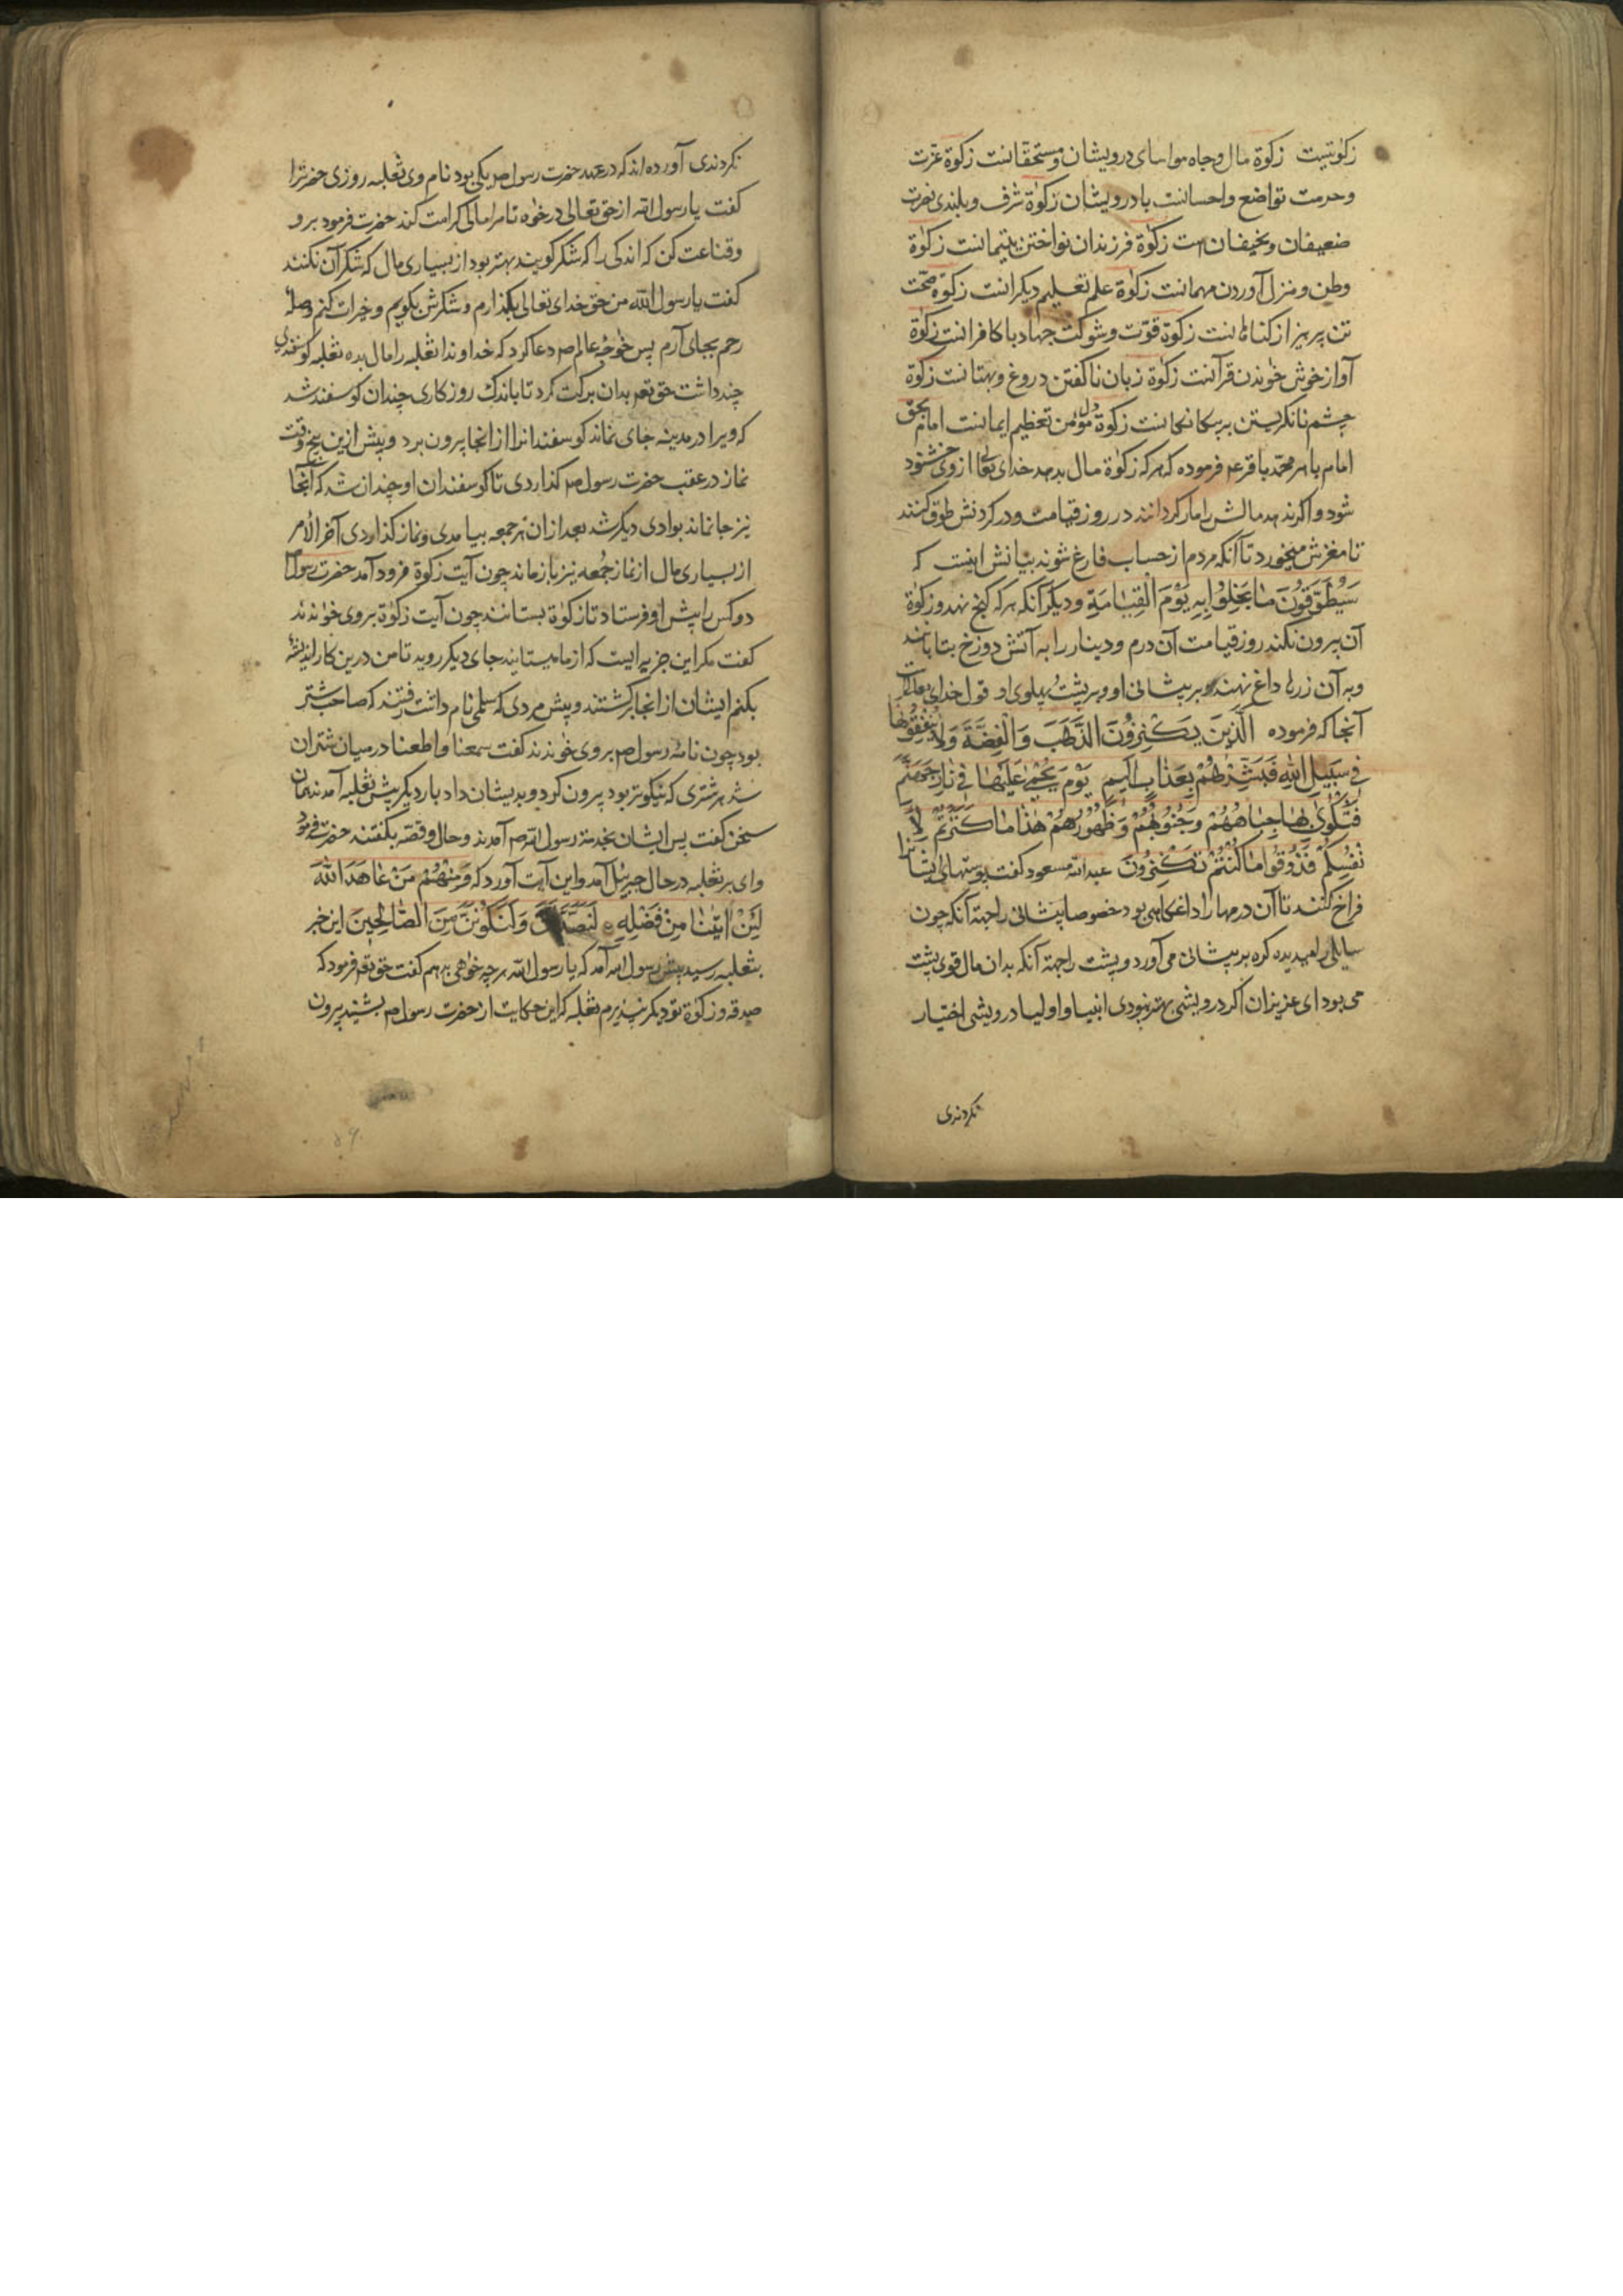 زکوتیست زکوة مال و جاه مواسای درویشان و مستحقانست زکوة عزت
و حرمت تواضع و احسانست با درویشان زکوة شرف و بلندی نصرت
ضعیفان و نحیفان است زکوة فرزندان نواختن یتیمانست زکوة
وطن و منزل آوردن مهمانست زکوة علم تعلیم دیکرانست زکوة صحت
تن پرهیز از کناهانست زکوة قوت و شوکت جهاد با کافرانست زکوة
آواز خوش خواندن قرآنست زکوة زبان ناکفتن دروغ و بهتانست زکوة
چشم نانکریستن بر بیکانکانست زکوة دل مؤمن تعظیم ایمانست امام بحق
امام باهر محمد باقر عم فرموده که هر که زکوة مال بدهد خدای تعالی از وی خشنود
شود و اکر ندهد مالش را مار کردانند در روز قیامت و در کردنش طوق کنند
تا مغزش میخورد تا آنکه مردم از حساب فارغ شوند بیانش اینست که
سَیُطَوَّقُونَ مَا بَخِلُوا بِهِ یَوْمَ الْقِیَامَةِ و دیکر آنکه هر که کنج نهد و زکوة
آن بیرون نکند روز قیامت آن درم و دینار را به آتش دوزخ بتابانند
و به آن زرها داغ نهند بر پیشانی او و بر پشت و پهلوی او قول خدای تعالی
آنجا که فرموده الَّذِینَ یَکْنِزُونَ الذَّهَبَ وَ الْفِضَّةَ وَلَا یُنْفِقُونَهَا
فِی سَبِیلِ اللّهِ فَبَشِّرْهُمْ بِعَذَابٍ اَلِیمٍ یَوْمَ یُحْمَی عَلَیْهَا فِی نَارِ جَهَنَّمَ
فَتُکْوَی بِهَا جِبَاهُهُمْ وَ جُنُوبُهُمْ وَ ظُهُورُهُمْ هٰذَا مَا کَنَزْتُمْ لِاَ
نْفُسِکُمْ فَذُوقُوا مَا کُنْتُمْ تَکْنِزُونَ عبد الله مسعود کفت پوستهای ایشانرا
فراخ کنند تا آن درمها را داغکاهی بود خصوصا پیشانی را جهة آنکه چون
سایلی را میدیده کره بر پیشانی می آورد و پشت را جهة آنکه بدان مال قوی پشت
می بود ای عزیزان اکر درویشی بهتر نبودی انبیا و اولیا درویشی اختیار
نکردندی
نکردندی آورده اند که در عهد حضرت رسول صم یکی بود نام وی ثعلبه روزی حضرترا
کفت یا رسول الله از حق تعالی درخواه تا مرا مالی کرامت کند حضرت فرمود برو
و قناعت کن که اندکی را که شکر کویند بهتر بود از بسیاری مال که شکر آن نکنند
کفت یا رسول الله من حق خدای تعالی بکذارم و شکرش بکویم و خیرات کنم و صلهٔ
رحم بجای آرم پس خواجهٔ عالم صم دعا کرد که خداوندا ثعلبه را مال بده ثعلبه کوسفندی
چند داشت حق تعم بدان برکت کرد تا باندک روزکاری چندان کوسفند شد
که ویرا در مدینه جای نماند کوسفندانرا از آنجا بیرون برد و پیش ازین پنج وقت
نماز در عقب حضرت رسول صم کذاردی تا کوسفندان او چندان شد که آنجا
نیز جا نماند بوادی دیکر شد بعد از آن هر جمعه بیامدی و نماز کذاردی آخر الامر
از بسیاری مال از نماز جمعه نیز باز ماند چون آیت زکوة فرود آمد حضرت رسول
دو کس را پیش او فرستاد تا زکوة بستانند چون آیت زکوة بر وی خواندند
کفت مکر این جزیه ایست که از ما میستانید جای دیکر روید تا من درین کار اندیشهٔ
بکنم ایشان از آنجا برکشتند و پیش مردی که سلمی نام داشت رفتند که صاحب شتر
بود چون نامهٔ رسول صم بر وی خواندند کفت سمعنا و اطعنا در میان شتران
شد هر شتری که نیکوتر بود بیرون کرد و بدیشان داد بار دیکر پیش ثعلبه آمدند همان
سخن کفت پس ایشان بخدمة رسول الله صم آمدند و حال و قصه بکفتند حضرت فرمود
وای بر ثعلبه در حال جبرئیل آمد و این آیت آورد که وَ مِنْهُمْ مَنْ عَاهَدَ اللّهَ
لَئِنْ اٰتٰینَا مِنْ فَضْلِهِ لَنَصَّدَّقَنَّ وَلَنَکُونَنَّ مِنَ الصَّالِحِینَ این خبر
بثعلبه رسید پیش رسول الله آمد که یا رسول الله هر چه خواهی بدهم کفت حق تعم فرمود که
صدقه و زکوة تو دیکر نپذیرم ثعلبه کر این حکایت از حضرت رسول صم بشنید بیرون